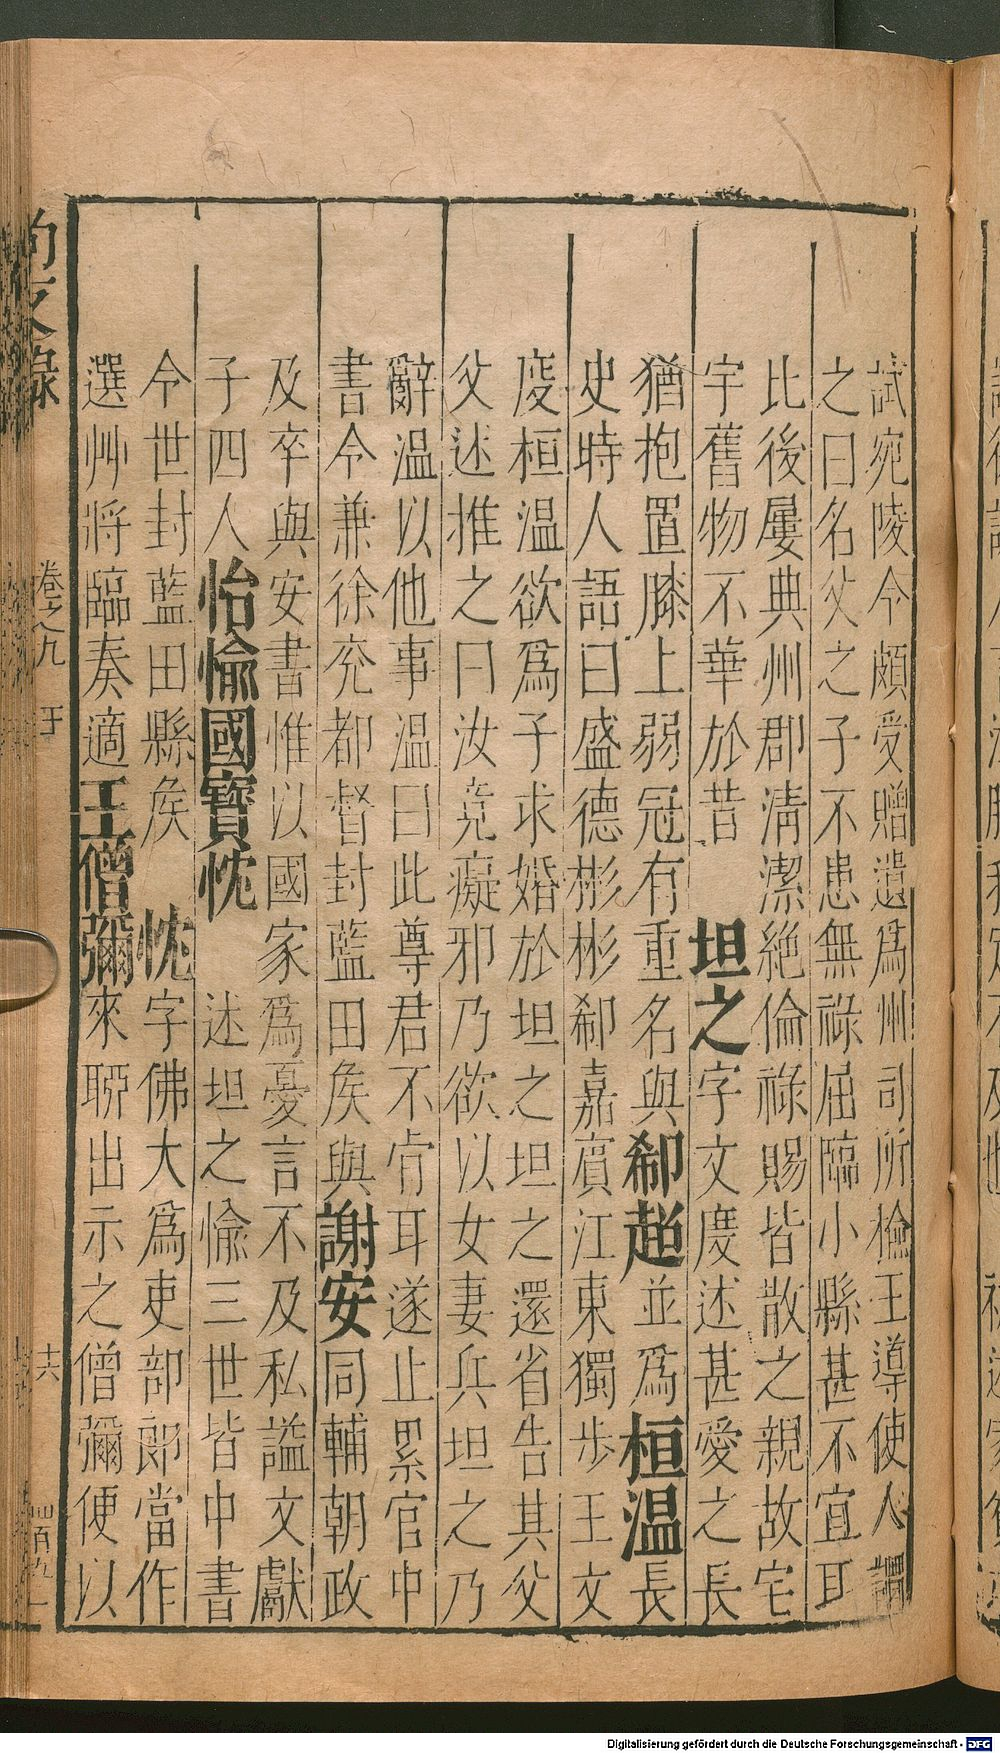 試宛陵令頗受贈遺爲州司所檢王導使人謂
之曰名父之子不患無祿屈臨小縣甚不宜耳
比後屢典州郡淸潔絕倫祿賜皆散之親故宅
宇舊物不華於昔　坦之字文度述甚愛之長
猶抱置膝上弱冠有重名與郗超並爲桓温長
史時人語曰盛德彬彬郗嘉賔江東獨步王文
度桓温欲爲子求婚於坦之坦之還省告其父
父述推之曰汝竟癡邪乃欲以女妻兵坦之乃
辭温以他事温曰此尊君不肯耳遂止累官中
書令兼徐兖都督封藍田矦與謝安同輔朝政
及卒與安書惟以國家爲憂言不及私謚文獻
子四人怡愉國寶忱　述坦之愉三世皆中書
令世封藍田縣矦　忱字佛大爲吏部郎當作
選艸將臨奏適王僧彌來聊出示之僧彌便以
卷之九
十六
Digitalisierung gefördert durch die Deutsche Forschungsgemeinschaft - DFG